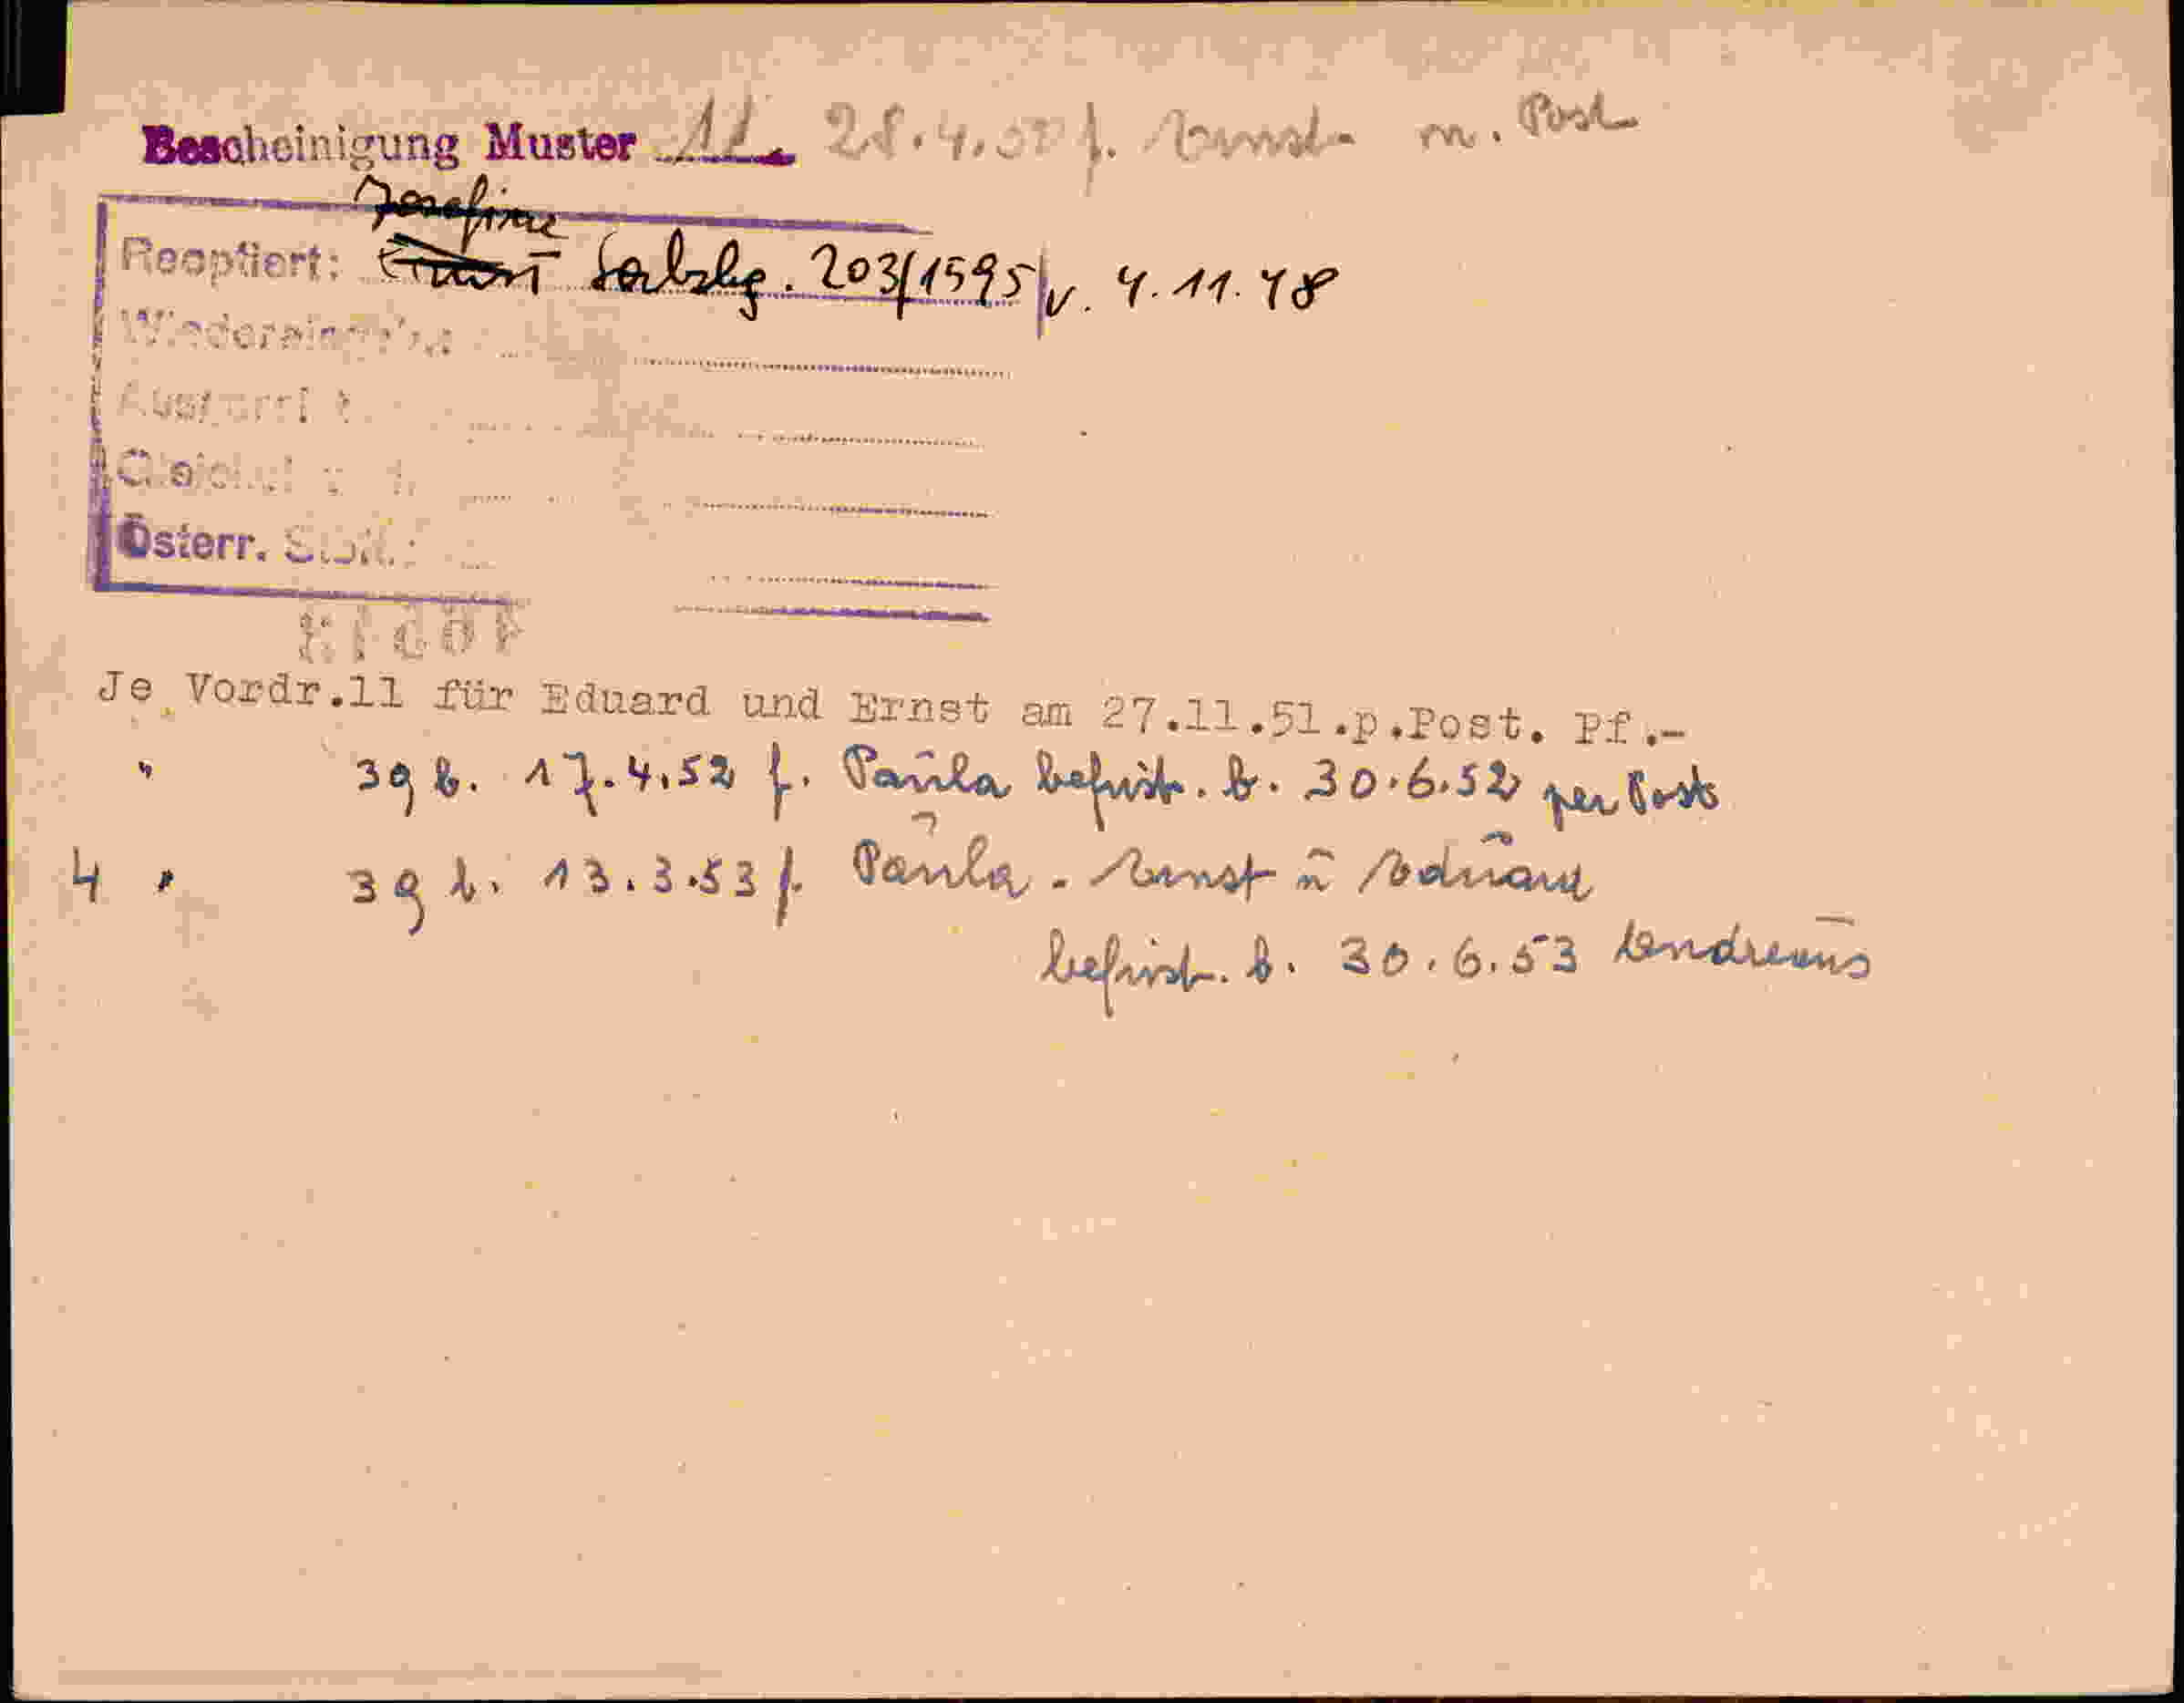 Bescheinigung Muster 11. 28.4.50 f. Ernst m. Post
Josefine
Reoptiert: Salzbg. 203/1595 v. 4.11.48
Österr.
Je Vordr.11 für Eduard und Ernst am 27.11.51.p.Post. Pf.-
" 3g b. 17.4.52 f. Paula befrist. b. 30.6.52 per Post
4 " 3g b. 13.3.53 f. Paula - Ernst u Eduard
befrist. b. 30.6.53